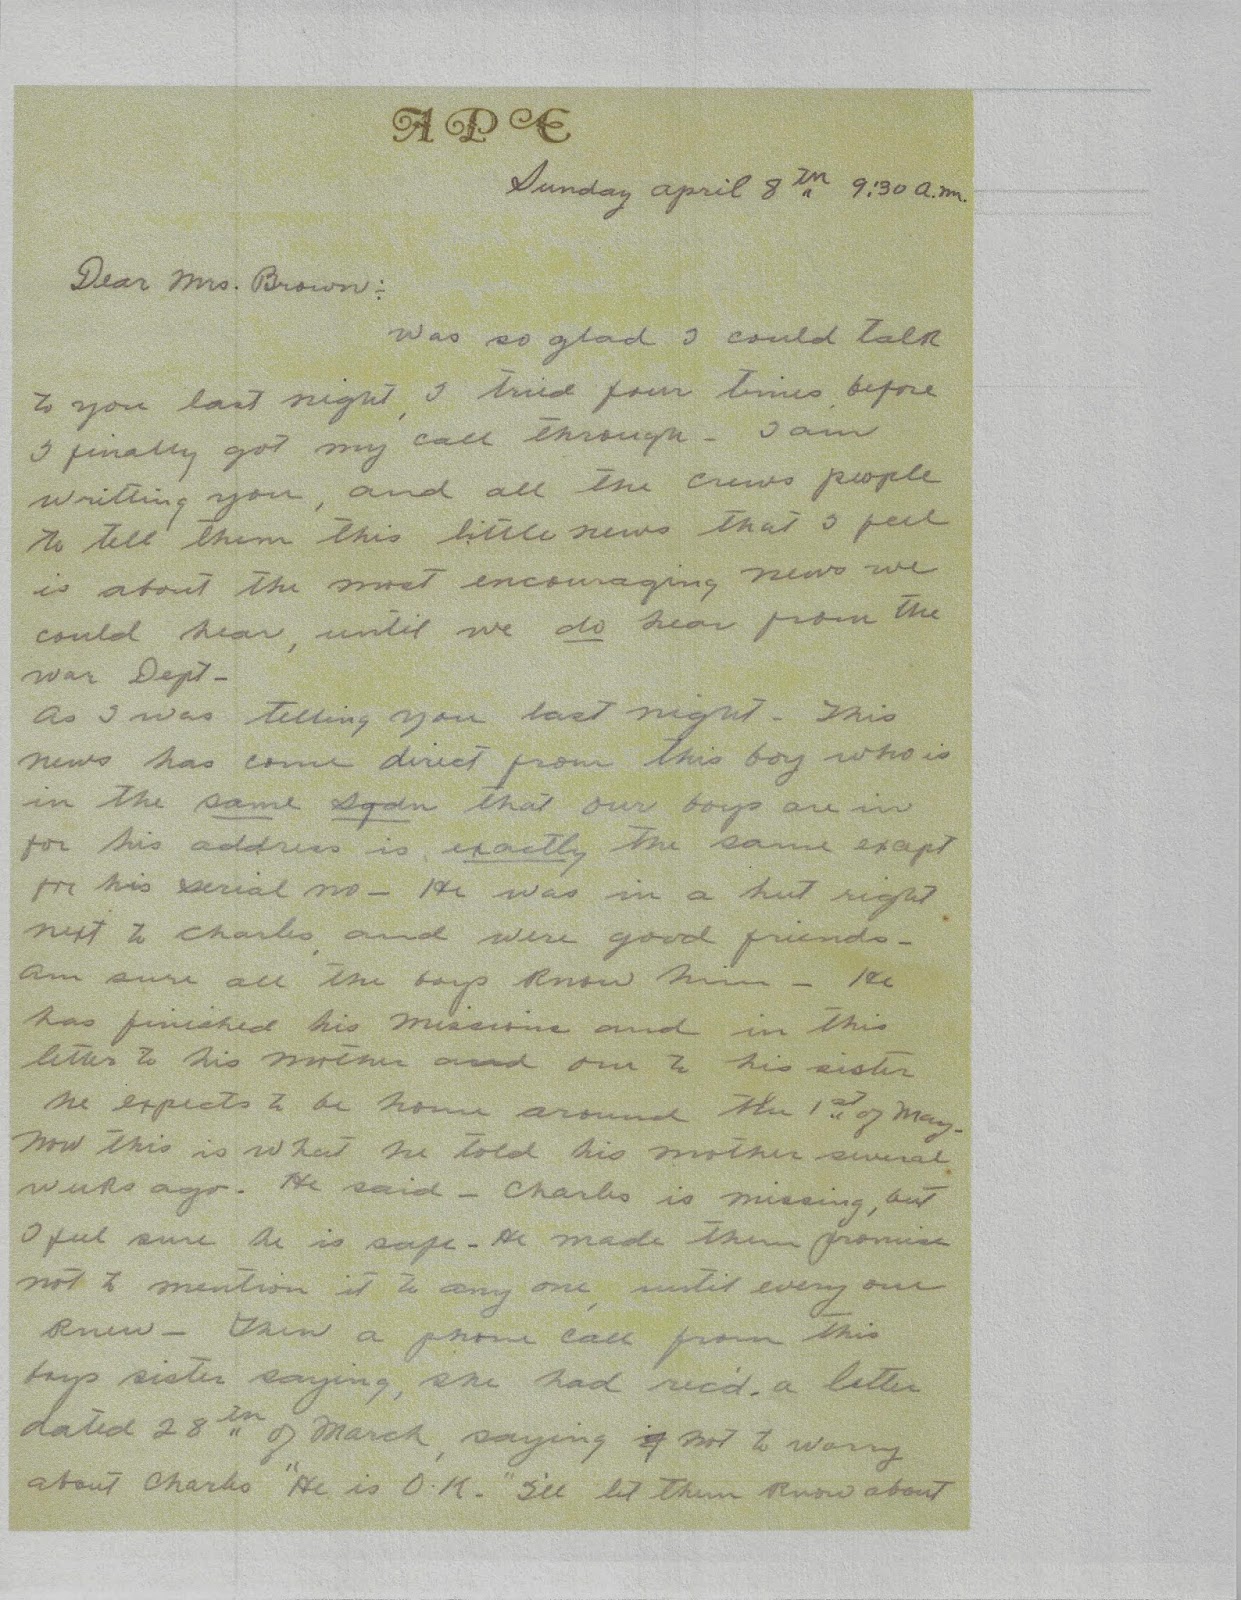 APE
Sunday april 8th 9:30 a.m.
Dear Mrs. Brown:
Was so glad I could talk
to you last night, I tried four times before
I finally got my call through - I am
writting you, and all the crews people
to tell them this little news that I feel
is about the most encouraging news we
could hear, until we do hear from the
war Dept -
As I was telling you last night - This
news has come direct from this boy who is
in the same Sqdn that our boys are in
for his address is exactly the same exapt
for his serial no - He was in a hut right
next to Charles, and were good friends -
am sure all the boys know him - He
has finished his missions and in this
letter to his mother and one to his sister
he expects to be home around the 1st of May -
Now this is what he told his mother several
weeks ago. He said - Charles is missing, but
I feel sure he is safe - He made them promise
not to mention it to any one, until every one
knew - Then a phone call from this
boys sister saying, she had rec'd. a letter
dated 28th of March, saying not to worry
about Charles "He is O.K." I'll let them know about